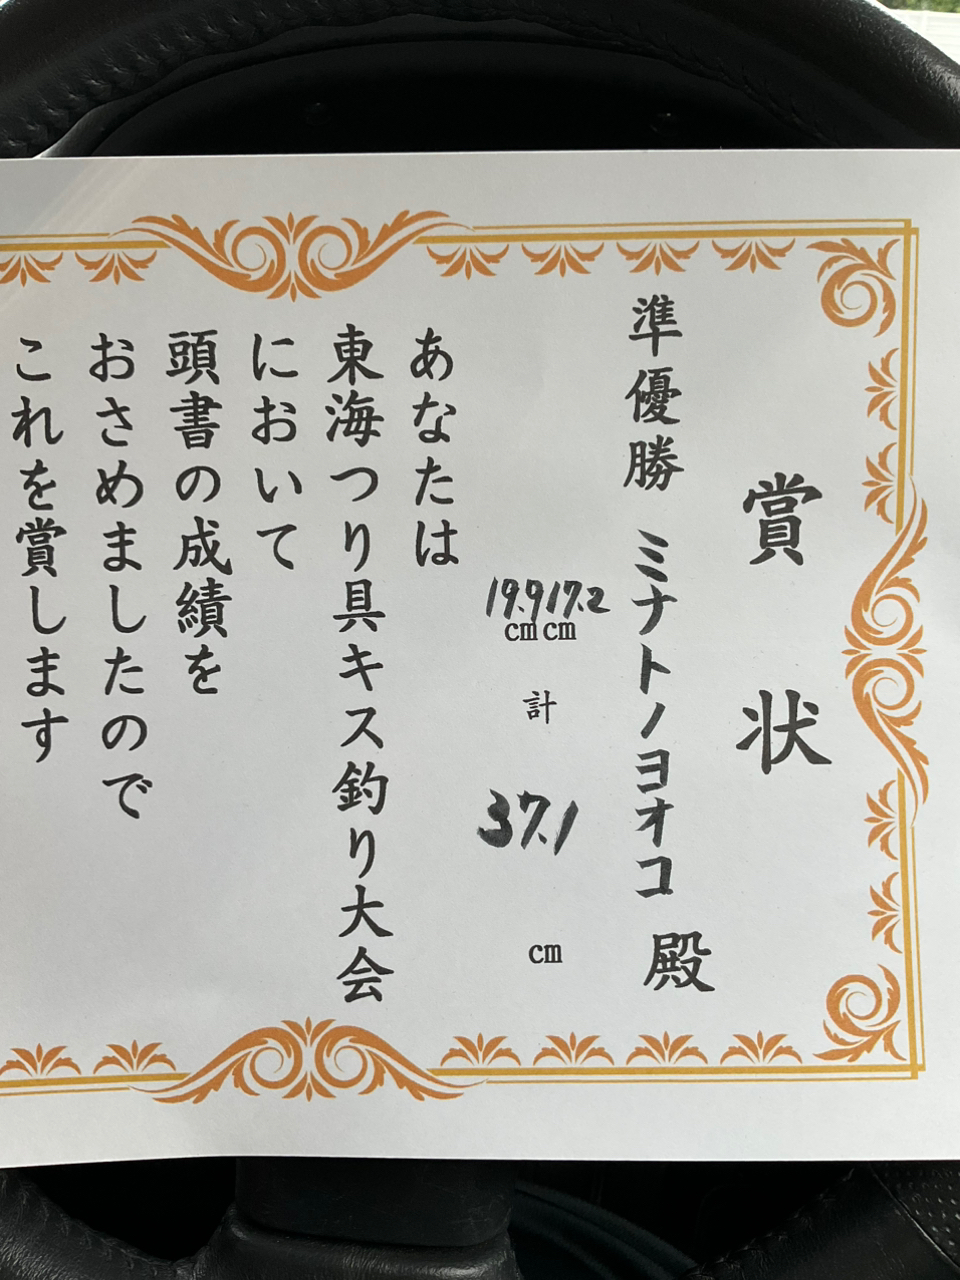 賞状
準優勝 ミナトノヨオコ 殿
19.9cm 17.2cm 計 37.1cm
あなたは
東海つり具キス釣り大会
において
頭書の成績を
おさめましたので
これを賞します